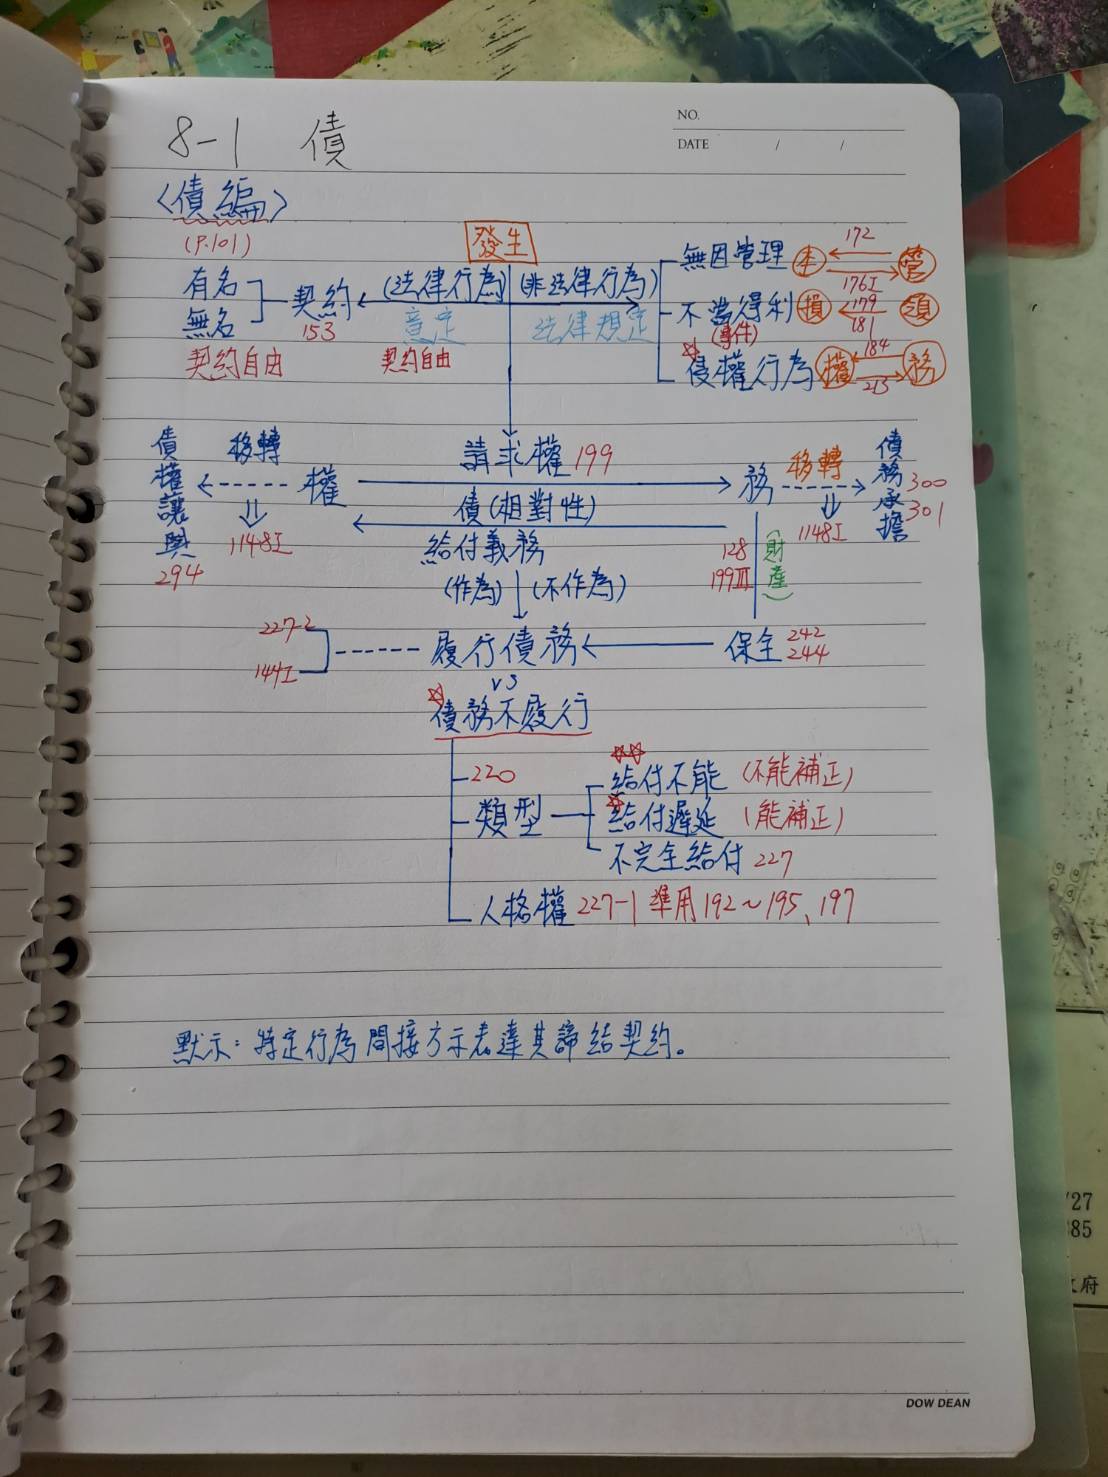 8-1 債
NO.
DATE / /
〈債編〉
(P.101)
發生
無因管理 本 172 管
176I
有名 契約 (法律行為) (非法律行為)
無名 153 意定 法律規定
不當得利 損 179 領
(事件) 181
契約自由 契約自由
侵權行為 權 184 務
213
債權讓與 移轉 權 請求權 199 務 移轉 債務承擔 300
301
1148I 債(相對性) 1148I
294 給付義務 128 (財產)
(作為) (不作為) 199III
227-2 履行債務 保全 242
244
144I
vs
債務不履行
220 給付不能 (不能補正)
類型 給付遲延 (能補正)
不完全給付 227
人格權 227-1 準用192~195、197
默示：特定行為間接方示表達其諦結契約。
DOW DEAN
/27
385
府